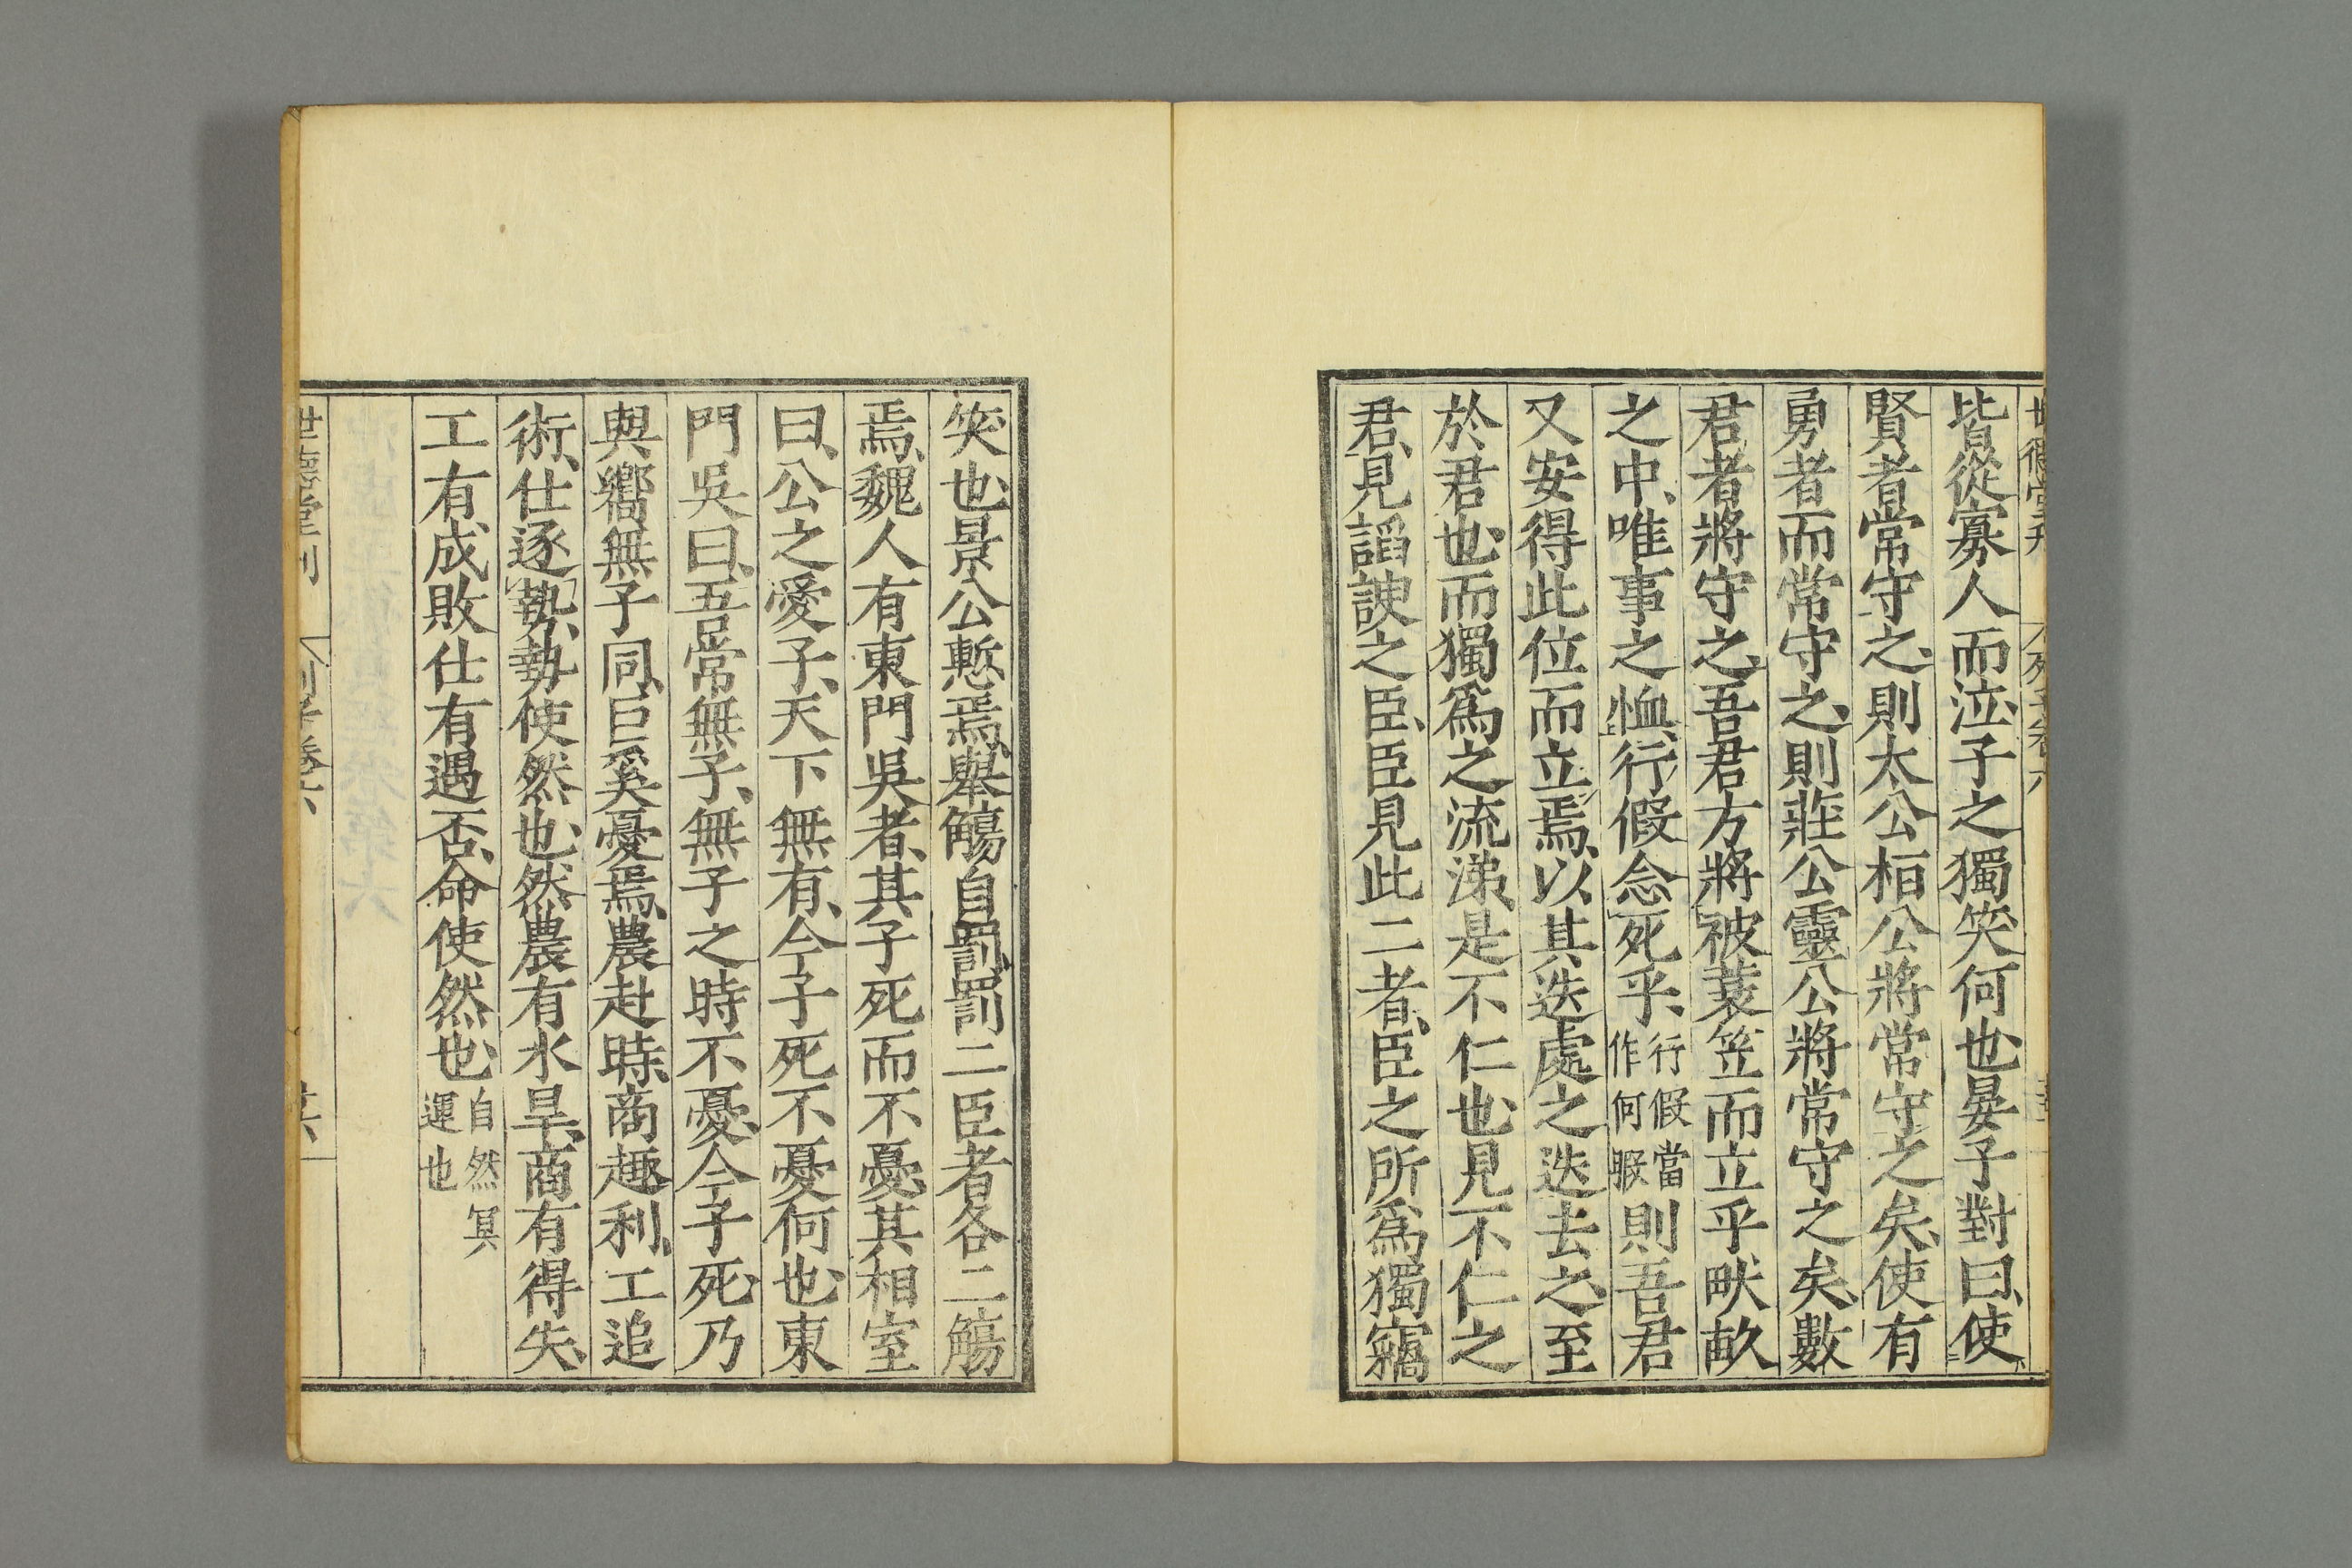 皆從寡人而泣子之獨笑何也晏子對曰使
賢者常守之則太公桓公將常守之矣使有
勇者而常守之則莊公靈公將常守之矣數
君者將守之吾君方將被蓑笠而立乎畎畝
之中唯事之恤行假念死乎行假當作何暇則吾君
又安得此位而立焉以其迭處之迭去之至
於君也而獨爲之流涕是不仁也見不仁之
君見謟諛之臣臣見此二者臣之所爲獨竊
笑也景公慙焉舉觴自罰罰二臣者各二觴
焉魏人有東門吳者其子死而不憂其相室
曰公之愛子天下無有今子死不憂何也東
門吳曰吾常無子無子之時不憂今子死乃
與嚮無子同臣奚憂焉農赴時商趣利工追
術仕逐埶勢使然也然農有水旱商有得失
工有成敗仕有遇否命使然也自然冥運也
世德堂刊 列子卷六